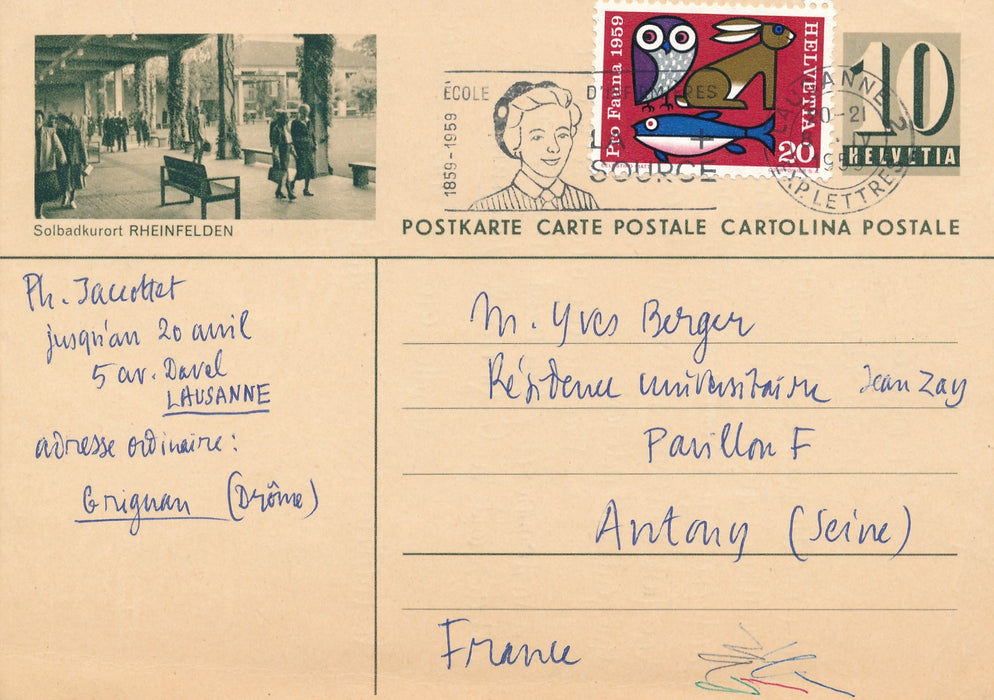 Solbadkurort RHEINFELDEN
1859-1959
ÉCOLE D'INFIRMIÈRES
LA SOURCE
Pro Fauna 1959
HELVETIA
20
LAUSANNE 2
EXP. LETTRES
10
HELVETIA
POSTKARTE CARTE POSTALE CARTOLINA POSTALE
Ph. Jaccottet
jusqu'au 20 avril
5 av. Davel
LAUSANNE
adresse ordinaire:
Grignan (Drôme)
M. Yves Berger
Résidence universitaire Jean Zay
Pavillon F
Antony (Seine)
France